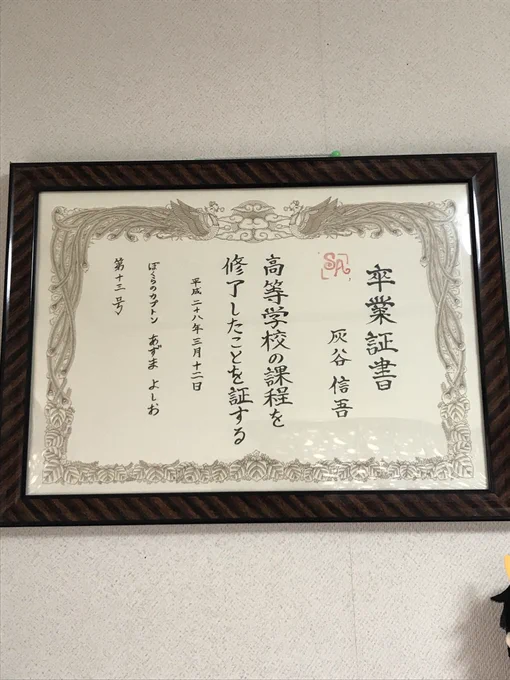 卒業証書
SA
灰谷 信吾
高等学校の課程を
修了したことを証する
平成二十八年三月十二日
ぼくらのカプトン あずま よしお
第十三号